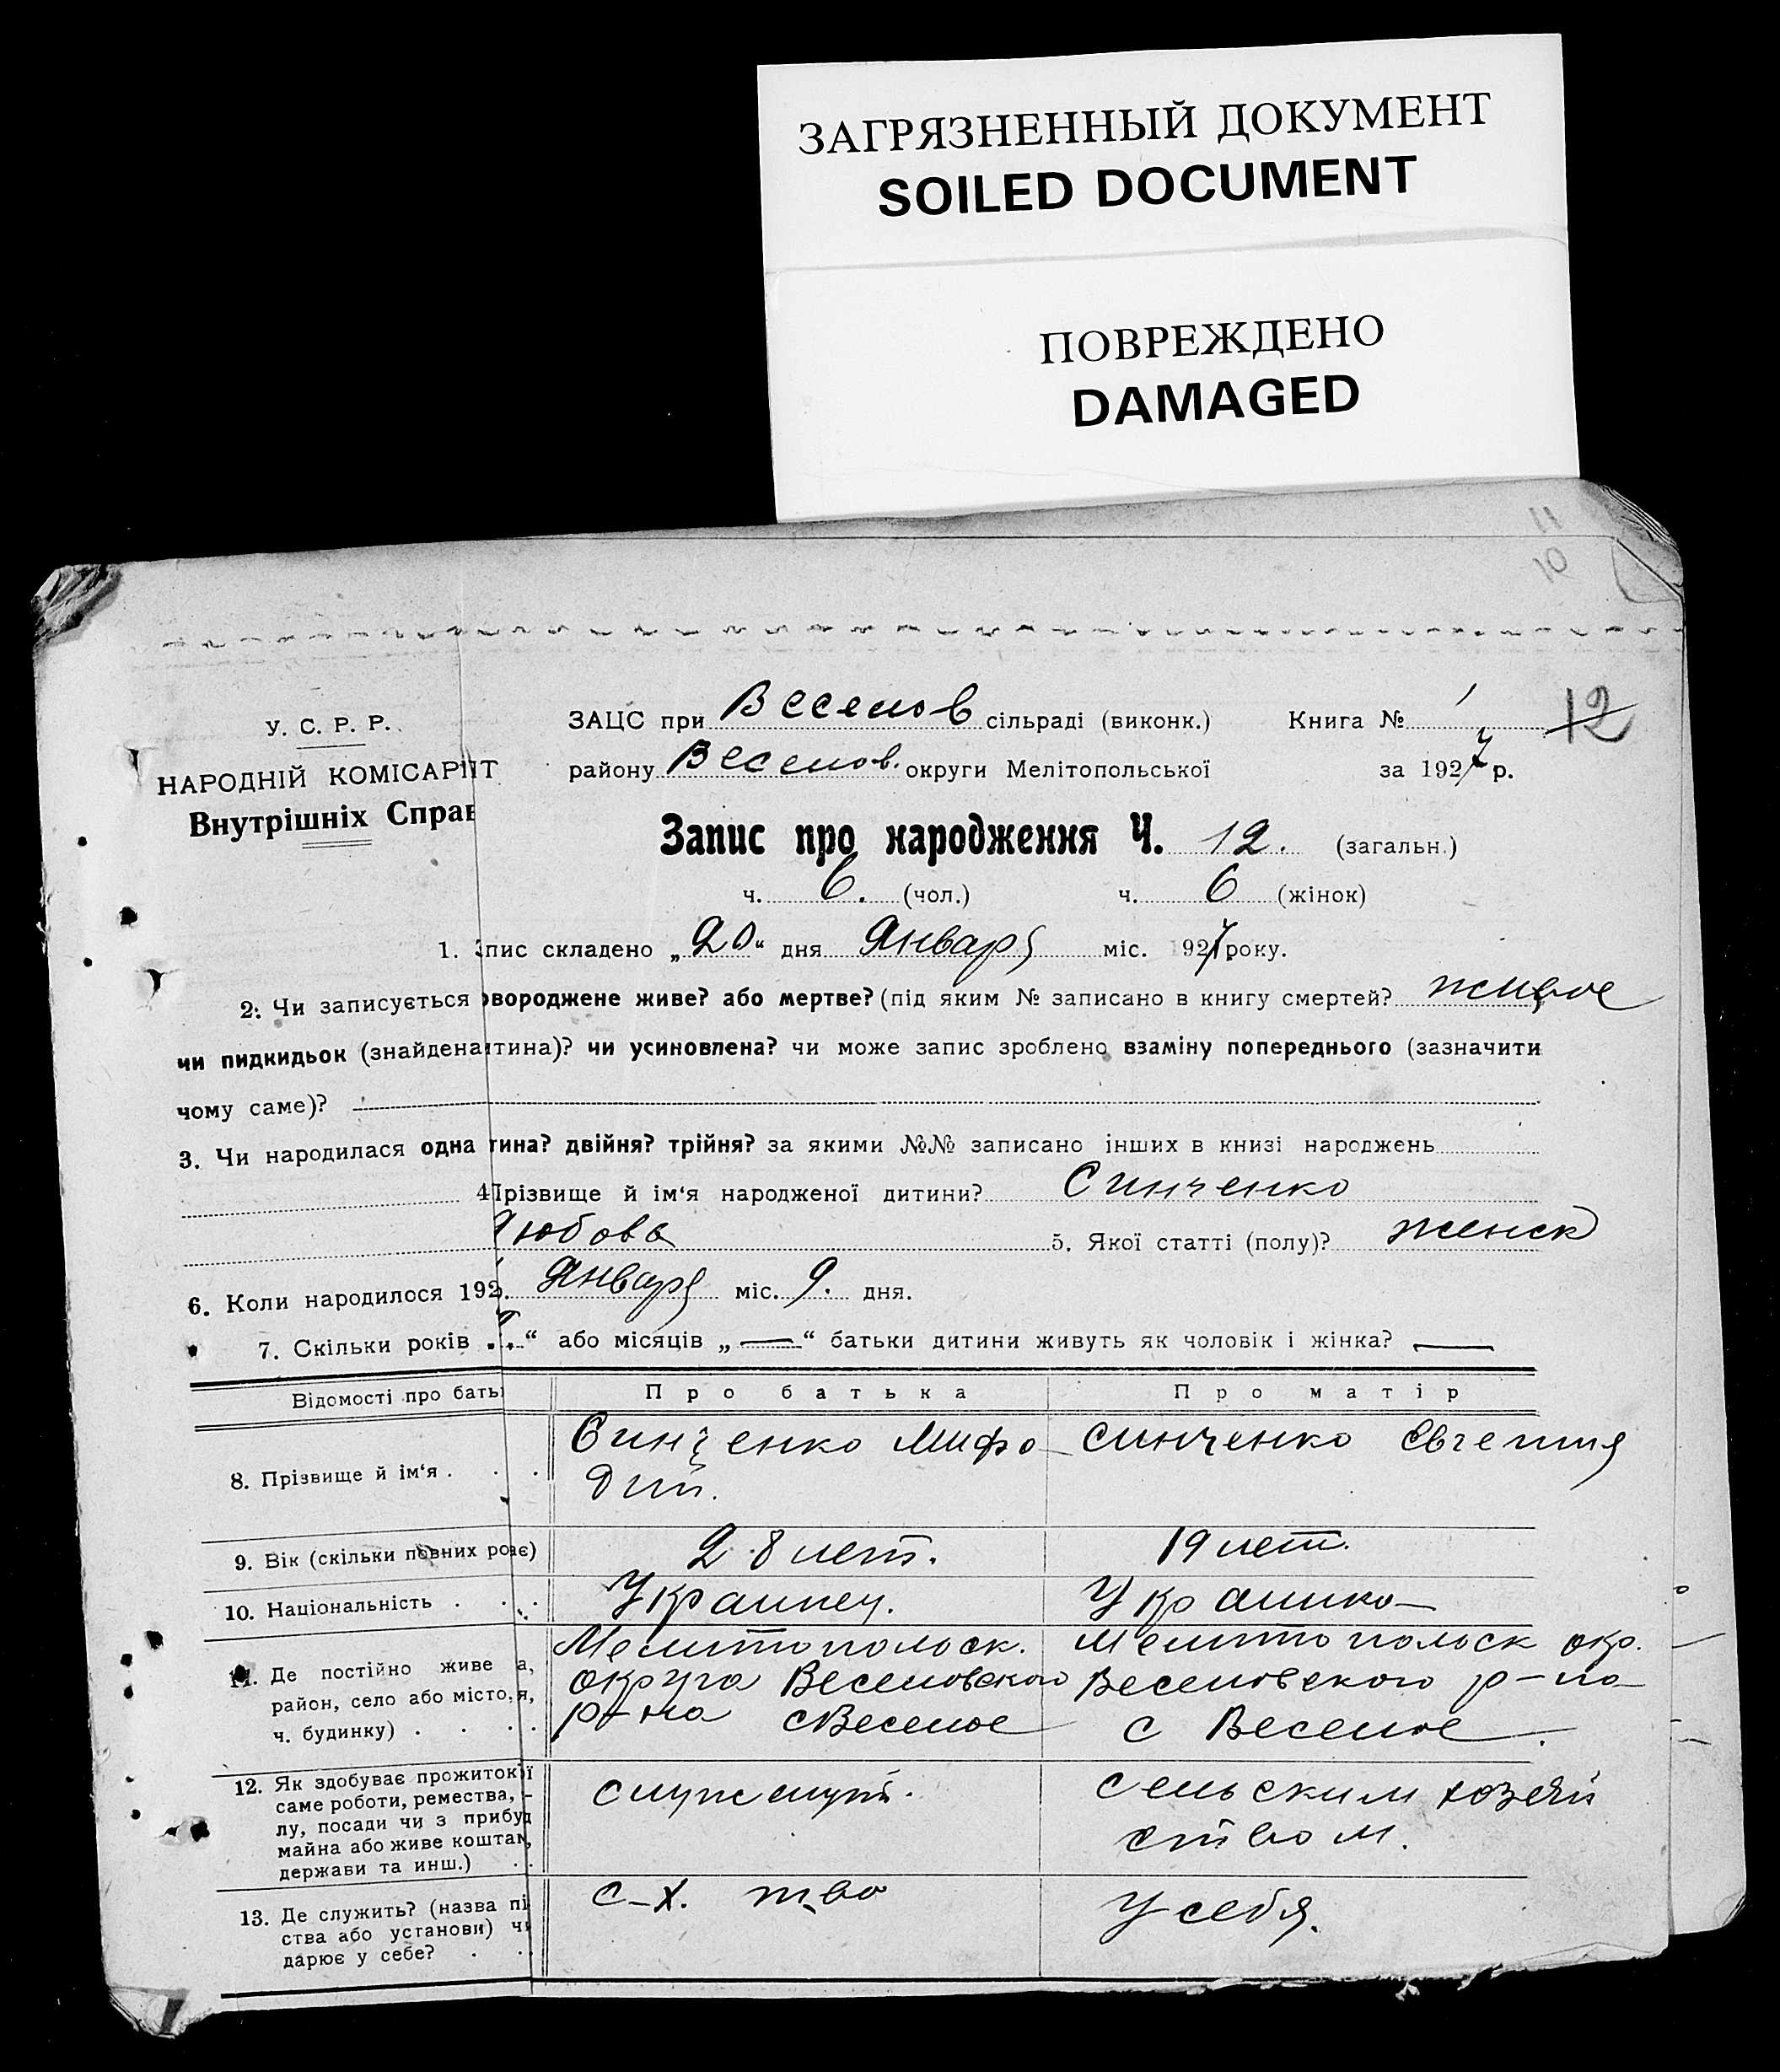 ЗАГРЯЗНЕННЫЙ ДОКУМЕНТ
SOILED DOCUMENT
ПОВРЕЖДЕНО
DAMAGED
11
10
У. С. Р. Р.
НАРОДНІЙ КОМІСАРІЯТ
Внутрішніх Справ
ЗАЦС при Веселов сільраді (виконк.) Книга № 1 12
району Веселов. округи Мелітопольської за 1927 р.
Запис про народження Ч. 12. (загальн.)
ч. 6. (чол.) ч. 6 (жінок)
1. пис складено „20“ дня Января міс. 1927 року.
2. Чи записується овороджене живе? або мертве? (під яким № записано в книгу смертей? живое
чи пидкидьок (знайдена тина)? чи усиновлена? чи може запис зроблено взаміну попереднього (зазначити
чому саме)?
3. Чи народилася одна тина? двійня? трійня? за якими №№ записано інших в книзі народжень
4 Прізвище й ім‘я народженої дитини? Синченко
Любовь 5. Якої статті (полу)? женск
6. Коли народилося 192 . Января міс. 9. дня.
7. Скільки років „ “ або місяців „—“ батьки дитини живуть як чоловік і жінка? —
Відомості про бать Про батька Про матір
8. Прізвище й ім‘я . . . Синченко Мифо- Синченко Евгения
дий.
9. Вік (скільки повних ро є) 28 лет. 19 лет.
10. Національність . . . Украинец. Украинка
11. Де постійно живе а, Мелитопольск. Мелитопольск окр.
район, село або місто, я, округа Веселовского Веселовского р-на
ч. будинку) . . . . р-на с Веселое с Веселое.
12. Як здобуває прожиток ї Служащий. Сельским хозяй
саме роботи, ремества, - ством.
лу, посади чи з прибу
майна або живе коштам,
держави та инш.) . .
13. Де служить? (назва пі С-х. т-во У себя.
ства або установи) чи
дарює у себе? . .